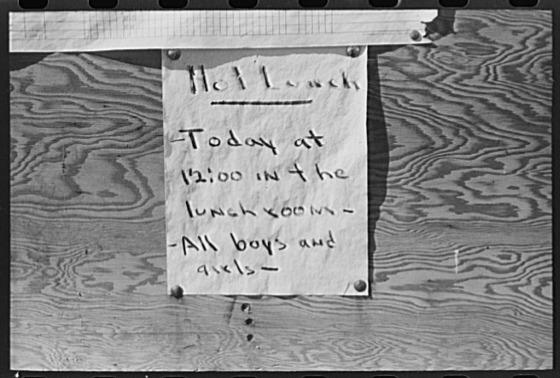 Hot Lunch
-Today at
12:00 IN the
lunch rooms-
-All boys and
girls-